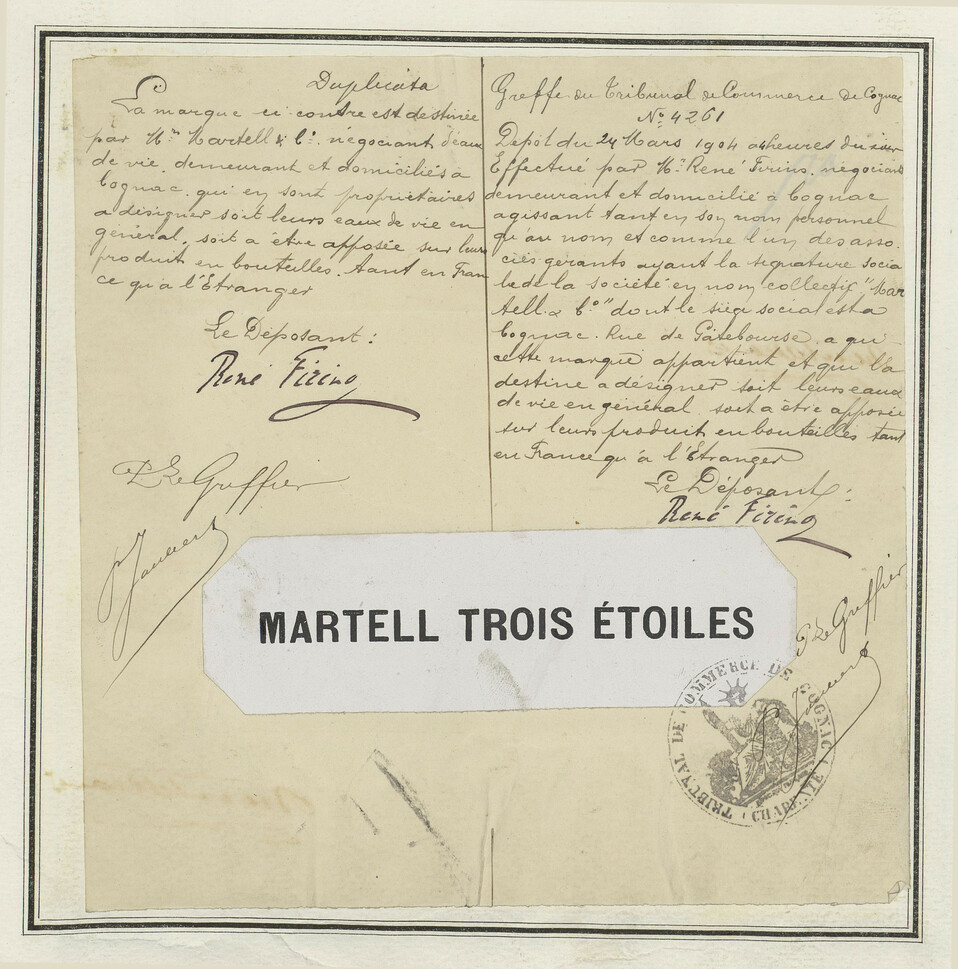 Duplicata
La marque ci contre est destinée
par Mrs Martell & Co. négociant d'eaux
de vie, demeurant et domiciliés à
Cognac, qui en sont propriétaires
a désigner soit leurs eaux de vie en
général, soit a être apposée sur leurs
produit en bouteilles, tant en Fran
ce qu'à l'Étranger
Le Déposant :
René Firino
Pr Le Greffier
Greffe du Tribunal de Commerce de Cognac
No 4261
Dépôt du 24 Mars 1904 à heures du soir
Effectué par Mr. René Firino, négociant
demeurant et domicilié à Cognac
agissant tant en son nom personnel
qu'au nom et comme l'un des asso-
ciés gérants ayant la signature socia
le de la société en nom collectif "Mar
tell & Co" dont le siège social est a
Cognac. Rue de Gâtebourse, a qui
cette marque appartient et qui la
destine a désigner soit leurs eaux
de vie en général, soit a être apposée
sur leurs produit en bouteilles tant
en France qu'à l'Étranger
Le Déposant :
René Firino
Pr Le Greffier
MARTELL TROIS ÉTOILES
TRIBUNAL DE COMMERCE DE COGNAC
(CHARENTE)